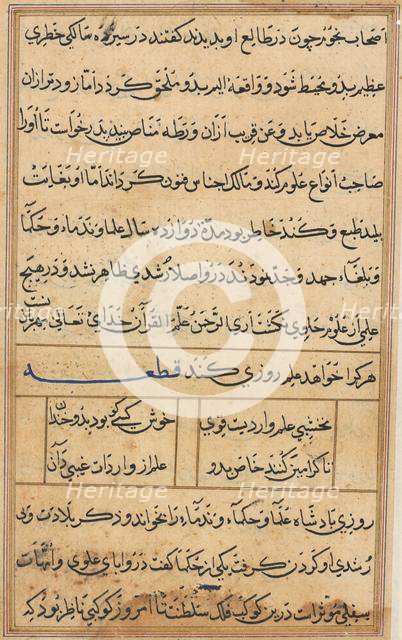 اصحاب نجوم چون در طالع او بدیدند گفتند در سیزده سالکی خطری
عظیم بدو محیط شود و واقعهٔ الیم بدو ملحق کردد اما زودتر از ان
معرض خلاص یابد و عن قریب از ان ورطه مناص بیند پدر خواست تا او را
صاحب انواع علوم کند و مالک اجناس فنون کرداند اما او بغایت
بلید طبع و کند خاطر بود مدة دوازده سال علما و ندماء و حکما
و بلغاء جهد و جد نمودند در و اصلا رشدی ظاهر نشد و در هیچ
علمی از علوم حاوی نکشت اری الرحمن علم القرآن خدای تعالی
هرکرا خواهد علم روزی کند قطعه
نخشبی علم واردیت قوی خوش کسی کو بود بدو خندان
کنند خاص بدو علم از واردات غیبی دان
روزی پادشاه علما و حکماء و ندماء را بخواند و ذکر بلادت و بی
رشدی او کردن کرفت یکی از حکما کفت در زوایای علوی و امهات
سفلی موثرات درین کوکب فلک سلطنت تا امروز کوکبی ناظر بود که
Heritage
Heritage
Heritage
Heritage
Heritage
Heritage